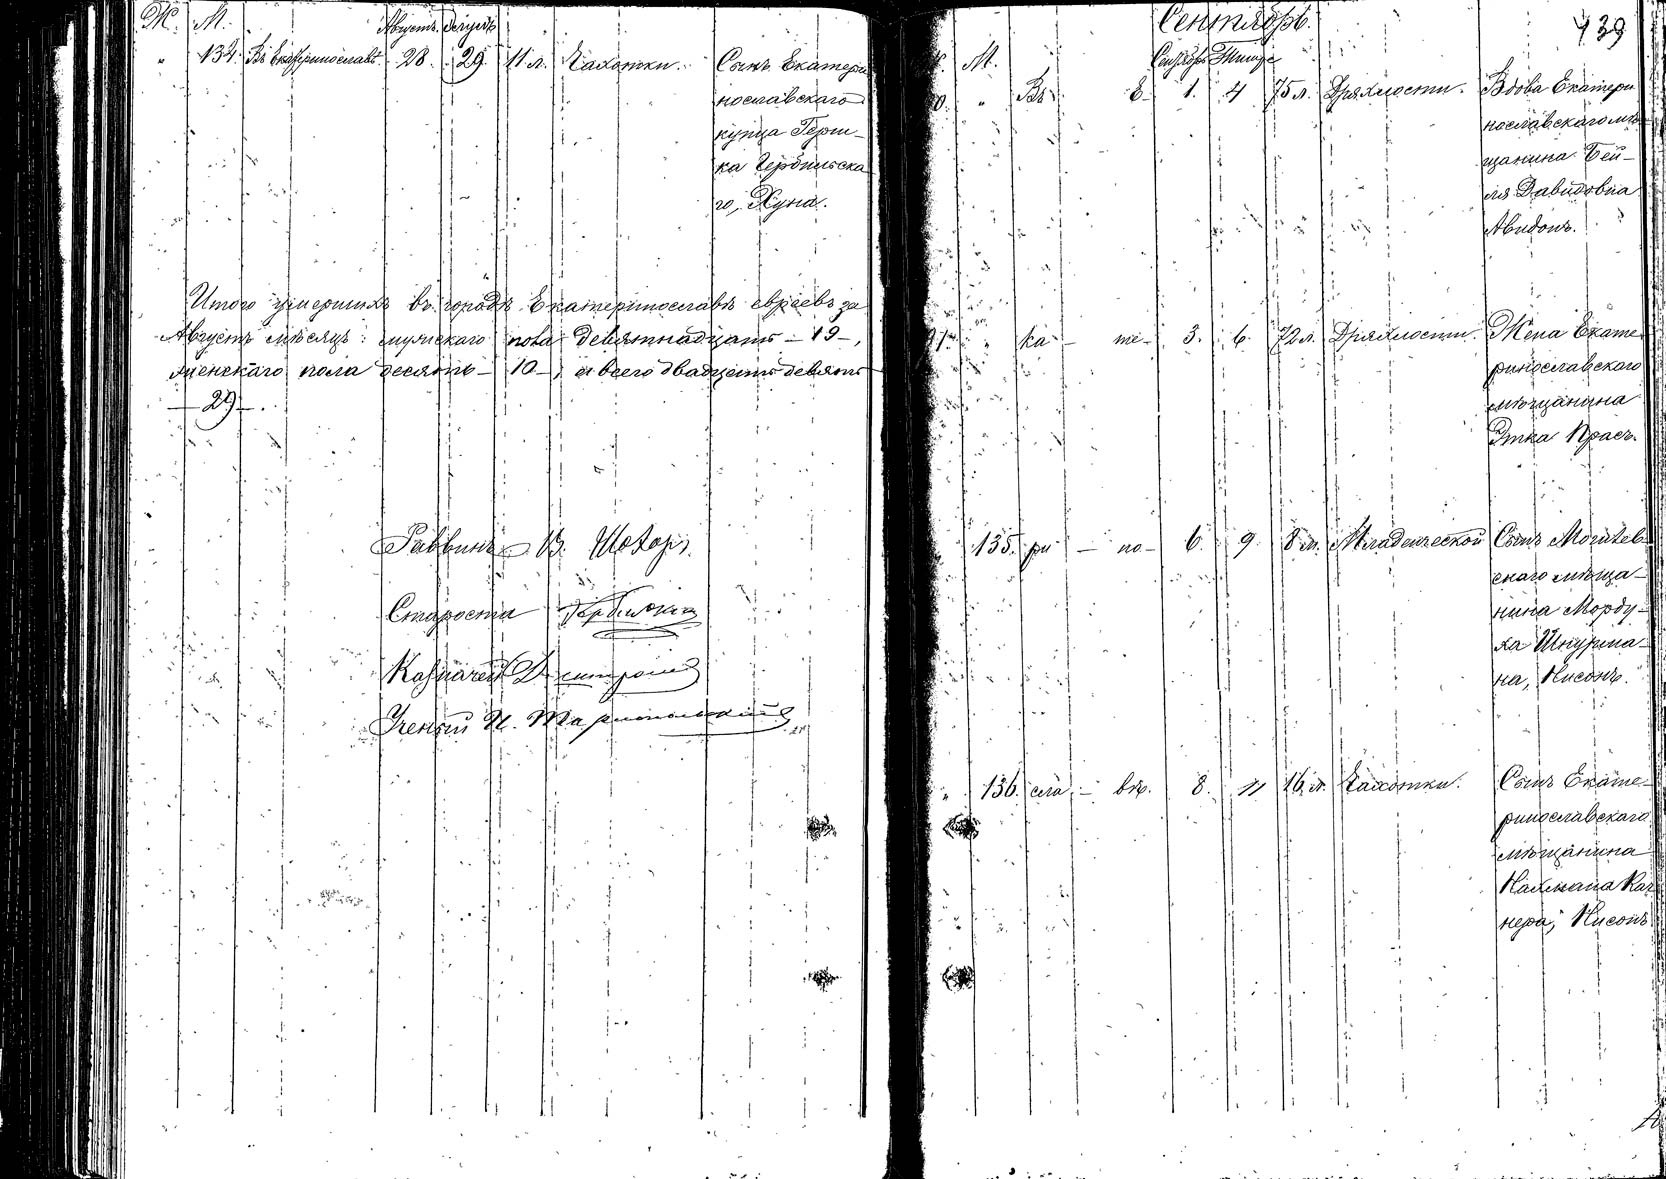 Ж. М. Августъ
" 134. Въ Екатеринославѣ 28 29 11 л. Чахотки. Сынъ Екатери
нославскаго
купца Герш-
ка Гербильска
го, Хуна.
Итого умершихъ въ городѣ Екатеринославѣ евреевъ за
Августъ мѣсяцъ: мужскаго пола девятнадцать - 19 -,
женскаго пола десять - 10 -, а всего двадцать девять
- 29 -.
Раввинъ В. Шохоръ
Староста
Казначей
Ученый И. Тарнопольскій
439
Сентябрь.
М. Сентябрь Тишре
" Въ Е- 1. 4 75 л. Дряхлости. Вдова Екатери
нославскаго мѣ-
щанина Бей-
ля Давидовна
Авидонъ.
91. " ка - те- 3. 6. 72 л. Дряхлости. Жена Екате-
ринославскаго
мѣщанина
Этка Прасъ.
135. ри - но- 6. 9. 8 м. Младенческой Сынъ Могилев-
скаго мѣща-
нина Морду-
ха Шнурма-
на, Нисонъ.
" 136. сла - вѣ. 8. 11 16 л. Чахотки. Сынъ Екате-
ринославскаго
мѣщанина
Нахмана
нера, Нисонъ